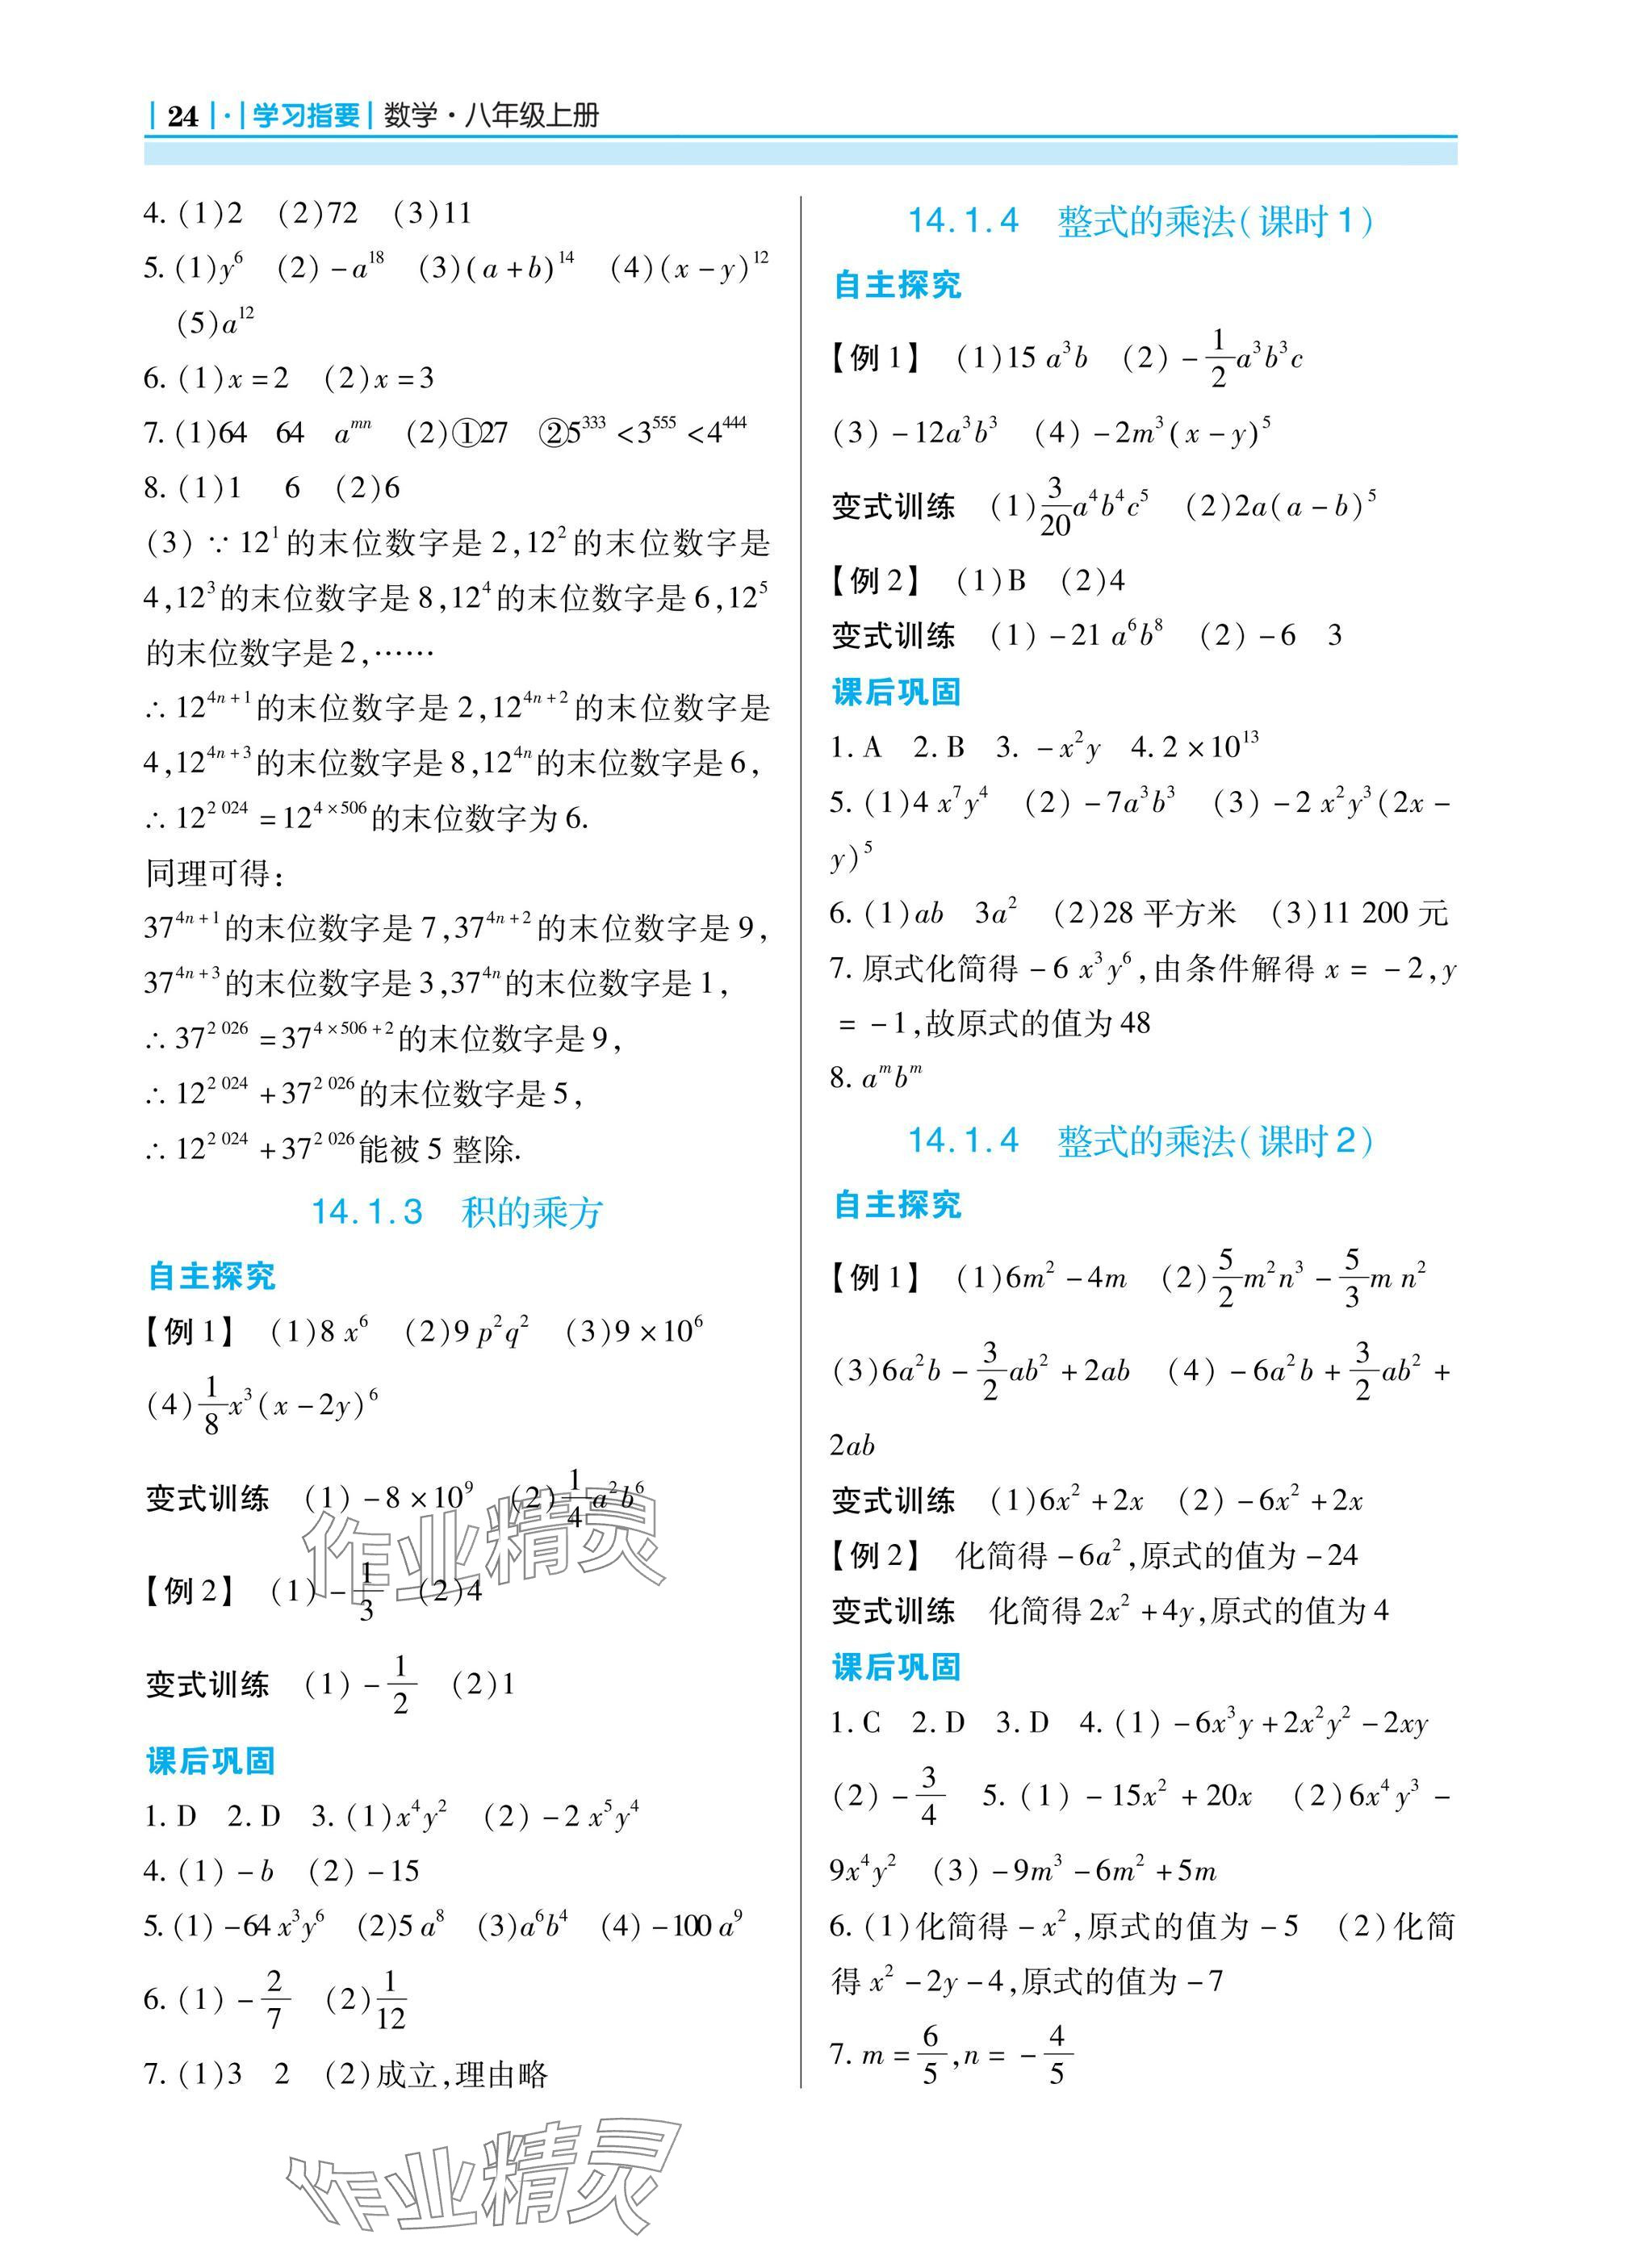 24 · 学习指要 数学·八年级上册
4. (1)2 (2)72 (3)11
5. (1)y⁶ (2)-a¹⁸ (3)(a+b)¹⁴ (4)(x-y)¹²
(5)a¹²
6. (1)x=2 (2)x=3
7. (1)64 64 aᵐⁿ (2)①27 ②5³³³<3⁵⁵⁵<4⁴⁴⁴
8. (1)1 6 (2)6
(3)∵12¹的末位数字是2,12²的末位数字是
4,12³的末位数字是8,12⁴的末位数字是6,12⁵
的末位数字是2,……
∴12⁴ⁿ⁺¹的末位数字是2,12⁴ⁿ⁺²的末位数字是
4,12⁴ⁿ⁺³的末位数字是8,12⁴ⁿ的末位数字是6,
∴12² ⁰²⁴=12⁴ˣ⁵⁰⁶的末位数字为6.
同理可得:
37⁴ⁿ⁺¹的末位数字是7,37⁴ⁿ⁺²的末位数字是9,
37⁴ⁿ⁺³的末位数字是3,37⁴ⁿ的末位数字是1,
∴37² ⁰²⁶=37⁴ˣ⁵⁰⁶⁺²的末位数字是9,
∴12² ⁰²⁴+37² ⁰²⁶的末位数字是5,
∴12² ⁰²⁴+37² ⁰²⁶能被5整除.
14.1.3 积的乘方
自主探究
【例1】 (1)8x⁶ (2)9p²q² (3)9×10⁶
(4)1/8x³(x-2y)⁶
变式训练 (1)-8×10⁹ (2)1/4a²b⁶
【例2】 (1)-1/3 (2)4
变式训练 (1)-1/2 (2)1
课后巩固
1. D 2. D 3. (1)x⁴y² (2)-2x⁵y⁴
4. (1)-b (2)-15
5. (1)-64x³y⁶ (2)5a⁸ (3)a⁶b⁴ (4)-100a⁹
6. (1)-2/7 (2)1/12
7. (1)3 2 (2)成立,理由略
14.1.4 整式的乘法(课时1)
自主探究
【例1】 (1)15a³b (2)-1/2a³b³c
(3)-12a³b³ (4)-2m³(x-y)⁵
变式训练 (1)3/20a⁴b⁴c⁵ (2)2a(a-b)⁵
【例2】 (1)B (2)4
变式训练 (1)-21a⁶b⁸ (2)-6 3
课后巩固
1. A 2. B 3. -x²y 4. 2×10¹³
5. (1)4x⁷y⁴ (2)-7a³b³ (3)-2x²y³(2x-
y)⁵
6. (1)ab 3a² (2)28平方米 (3)11 200元
7. 原式化简得-6x³y⁶,由条件解得x=-2,y
=-1,故原式的值为48
8. aᵐbᵐ
14.1.4 整式的乘法(课时2)
自主探究
【例1】 (1)6m²-4m (2)5/2m²n³-5/3mn²
(3)6a²b-3/2ab²+2ab (4)-6a²b+3/2ab²+
2ab
变式训练 (1)6x²+2x (2)-6x²+2x
【例2】 化简得-6a²,原式的值为-24
变式训练 化简得2x²+4y,原式的值为4
课后巩固
1. C 2. D 3. D 4. (1)-6x³y+2x²y²-2xy
(2)-3/4 5. (1)-15x²+20x (2)6x⁴y³-
9x⁴y² (3)-9m³-6m²+5m
6. (1)化简得-x²,原式的值为-5 (2)化简
得x²-2y-4,原式的值为-7
7. m=6/5,n=-4/5
作业精灵
作业精灵